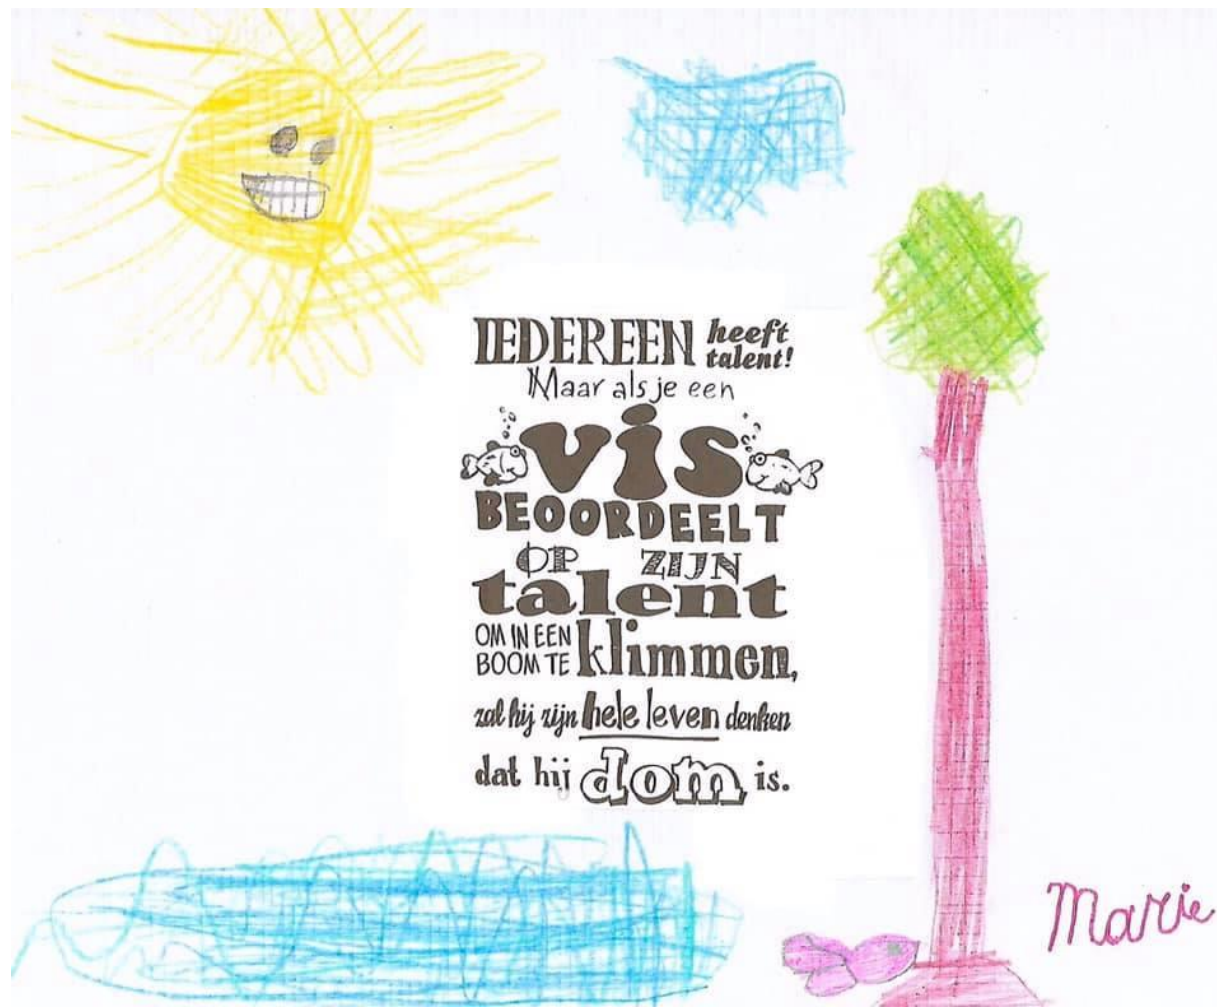 IEDEREEN heeft talent!
Maar als je een
vis
BEOORDEELT
OP ZIJN
talent
OM IN EEN
BOOM TE klimmen,
zal hij zijn hele leven denken
dat hij dom is.
Marie